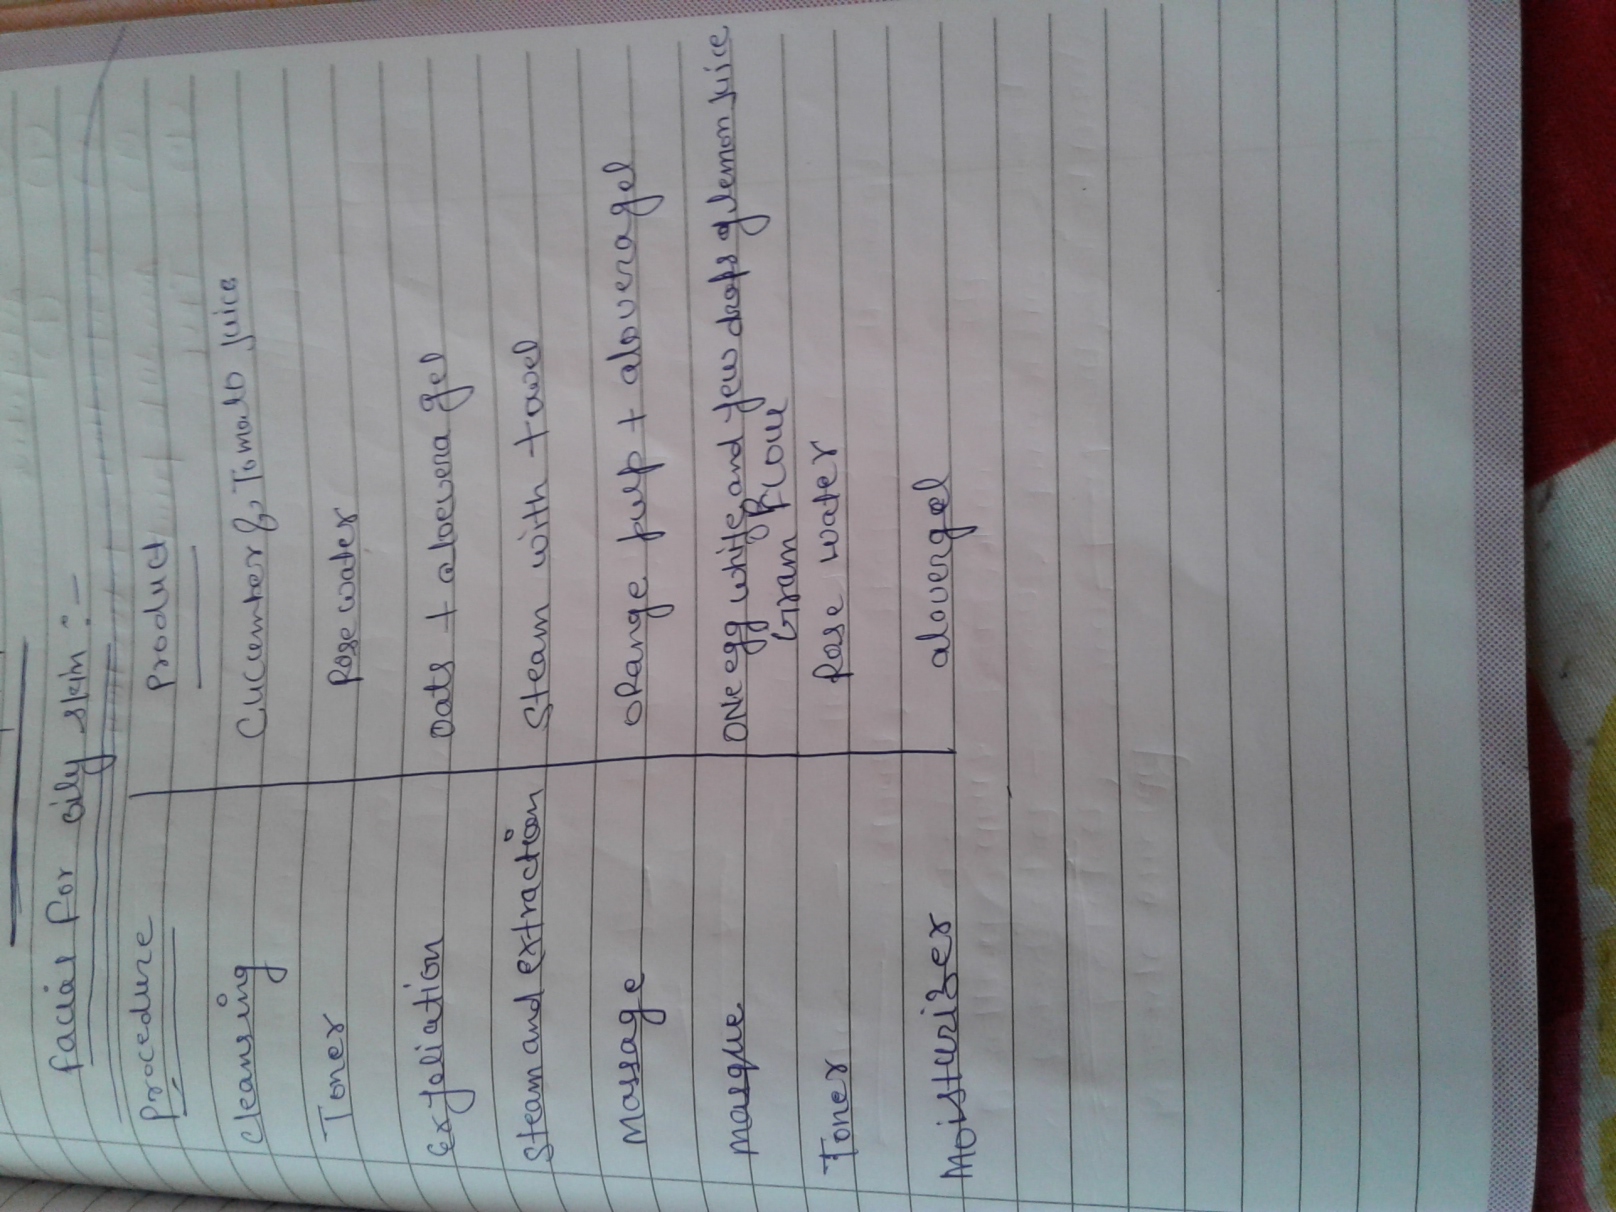 Facial For oily skin :-
Procedure Product
Cleansing Cucumber & Tomato juice
Toner Rose water
exfoliation Oats + aloevera gel
Steam and extraction Steam with towel
Massage Orange pulp + alovera gel
Masque ONE egg white, and few drops of lemon juice
Gram FLour
Toner Rose water
Moisturizer alovergel